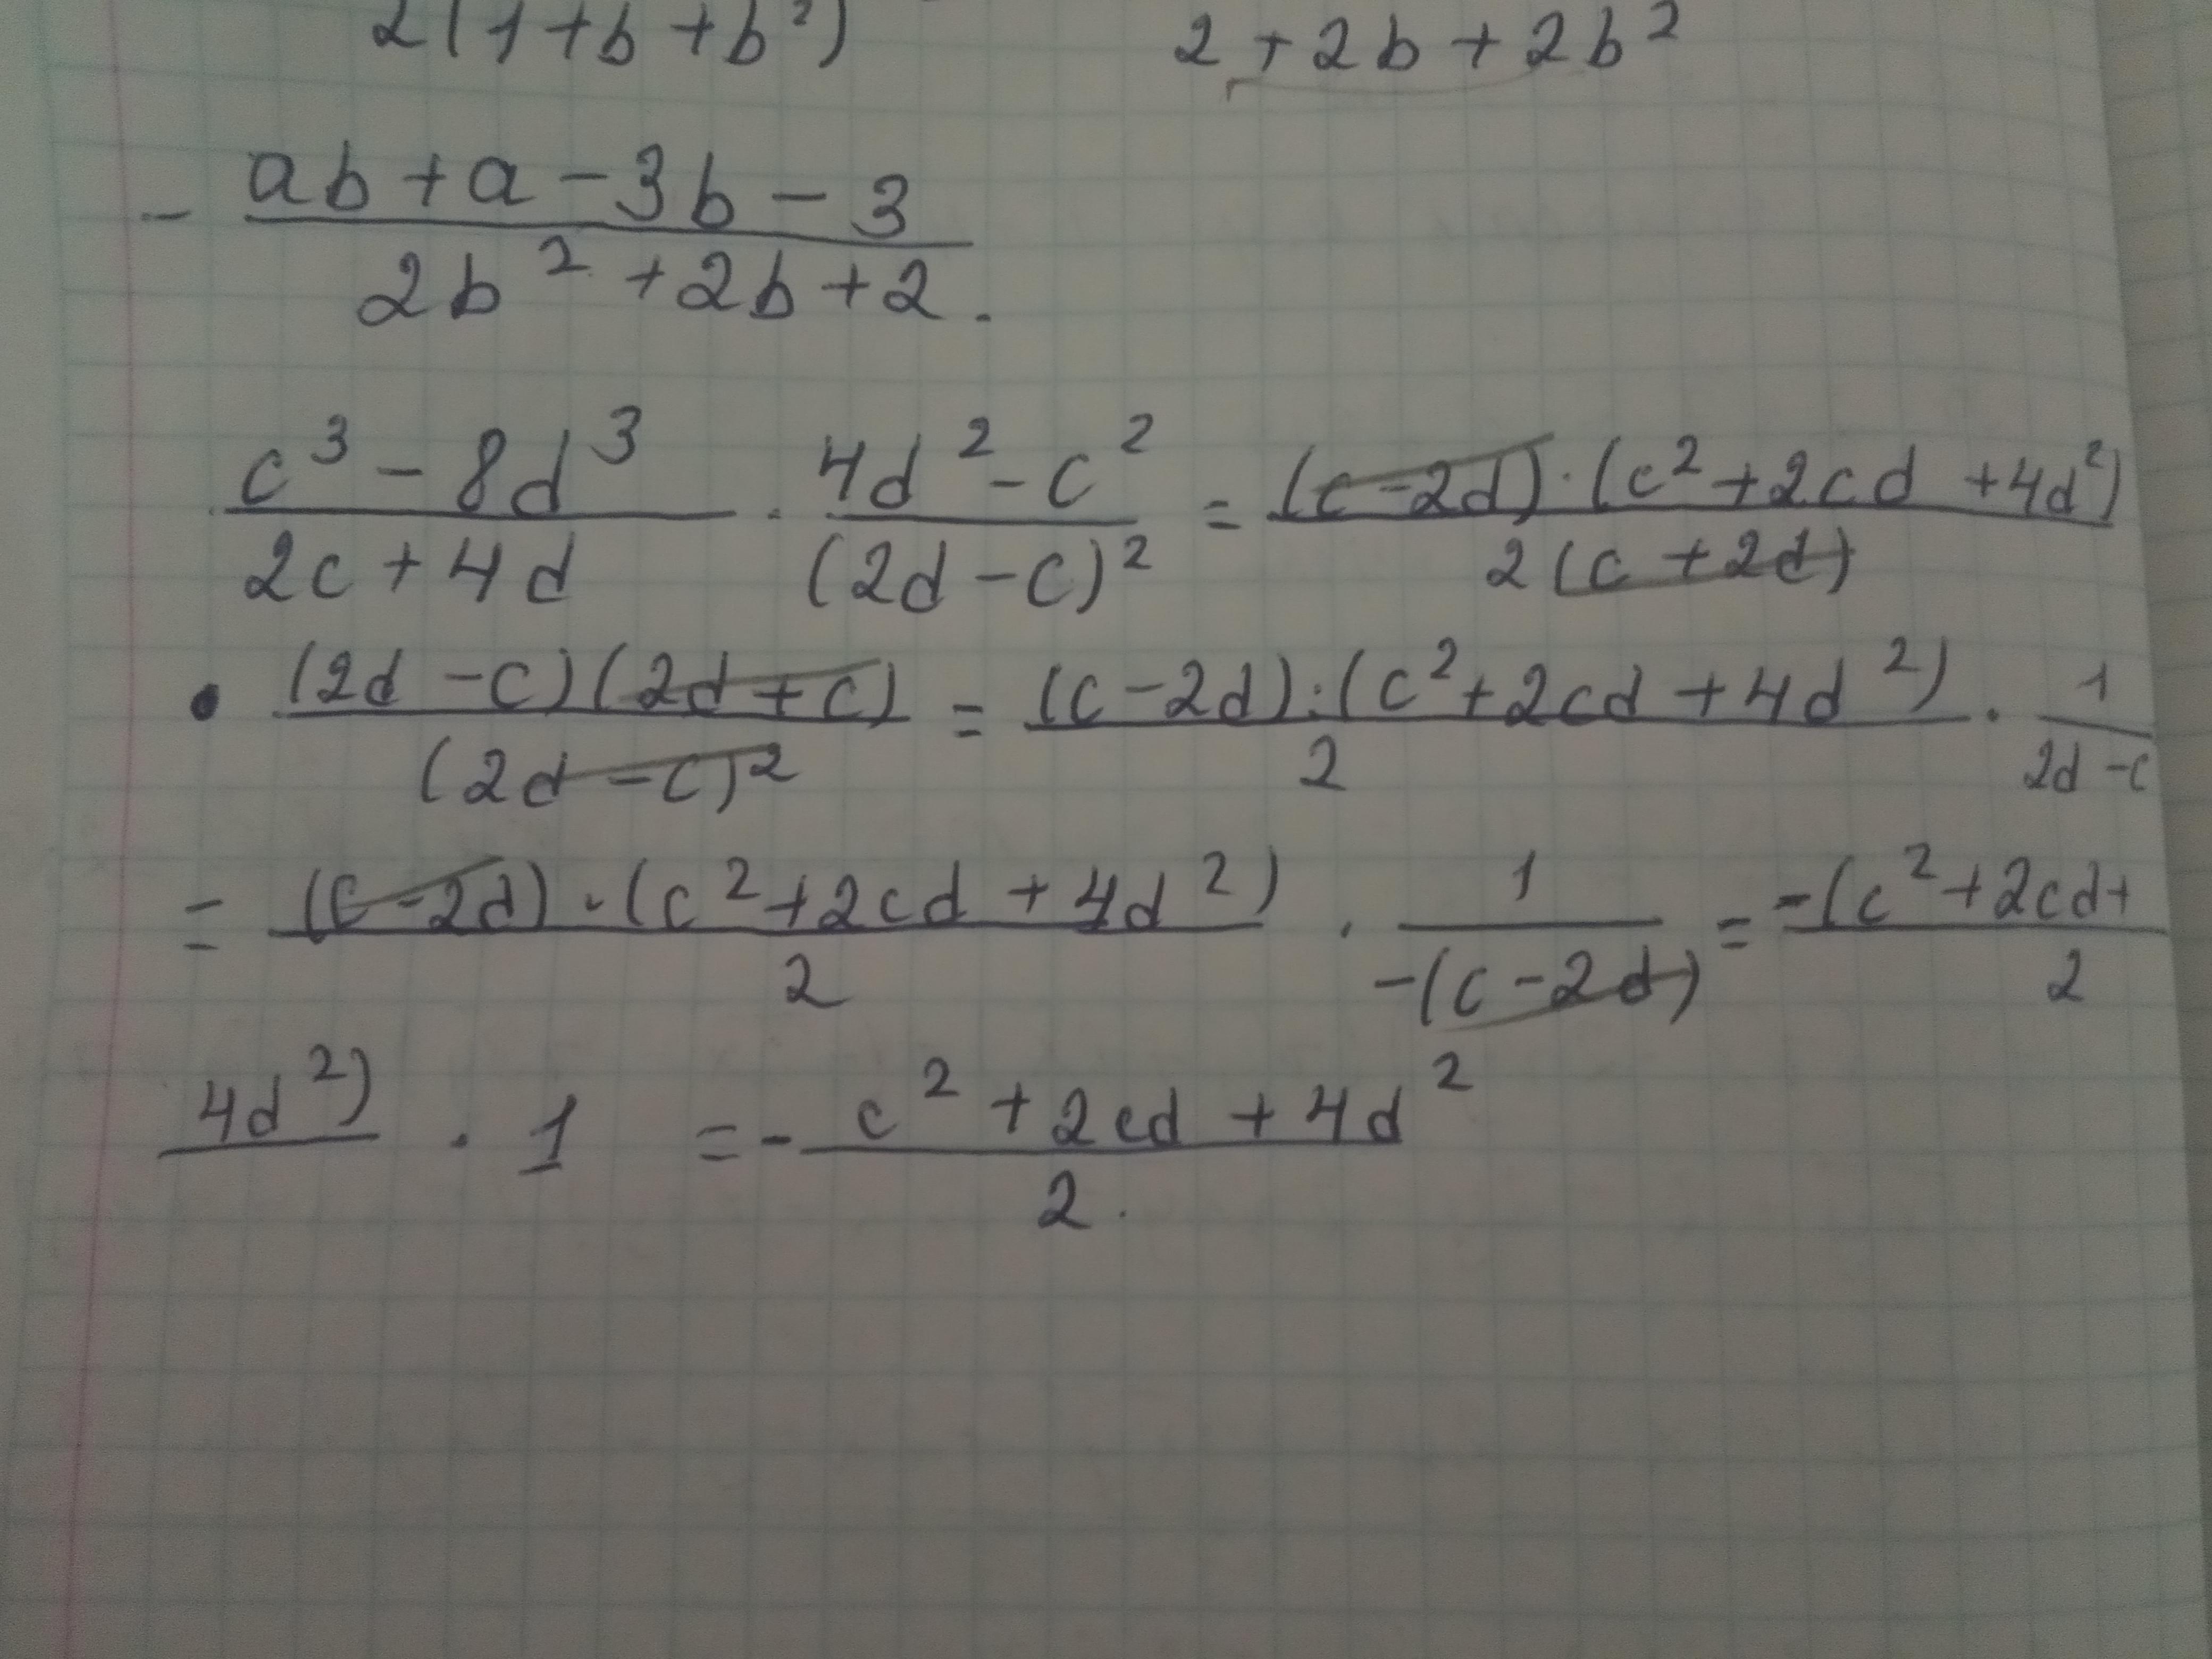 2(1+b+b²) 2+2b+2b²
- (ab+a-3b-3)/(2b²+2b+2).
(c³-8d³)/(2c+4d) · (4d²-c²)/(2d-c)² = ((c-2d)·(c²+2cd+4d²))/(2(c+2d))
· ((2d-c)(2d+c))/(2d-c)² = ((c-2d)·(c²+2cd+4d²))/2 · 1/(2d-c)
= ((c-2d)·(c²+2cd+4d²))/2 · 1/(-(c-2d)) = (-(c²+2cd+)/2
4d²) · 1 = - (c²+2cd+4d²)/2.